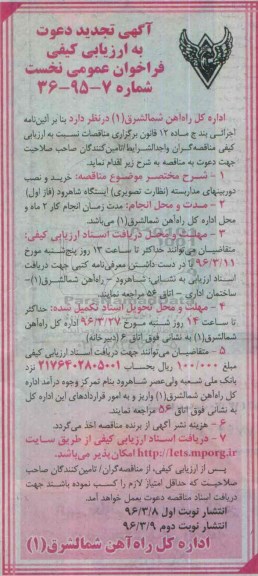 آگهی تجدید دعوت
به ارزیابی کیفی
فراخوان عمومی نخست
شماره ۷-۹۵-۳۶
اداره کل راه‌آهن شمالشرق(۱) درنظر دارد بنا بر آئین‌نامه
اجرائی بند ج ماده ۱۲ قانون برگزاری مناقصات نسبت به ارزیابی
کیفی مناقصه‌گران واجدالشرایط/تامین‌کنندگان صاحب صلاحیت
جهت دعوت به مناقصه به شرح زیر اقدام نماید.
۱ - شرح مختصر موضوع مناقصه: خرید و نصب
دوربینهای مداربسته (نظارت تصویری) ایستگاه شاهرود (فاز اول)
۲ - مدت و محل انجام: مدت زمان انجام کار ۲ ماه و
محل اداره کل راه‌آهن شمالشرق(۱) می‌باشد.
۳ - مهلت و محل دریافت اسناد ارزیابی کیفی:
متقاضیان می‌توانند حداکثر تا ساعت ۱۳ روز پنج‌شنبه مورخ
۹۶/۳/۱۱ با در دست داشتن معرفی‌نامه کتبی جهت دریافت
اسناد ارزیابی به نشانی: شاهرود - راه‌آهن شمالشرق(۱)-
ساختمان اداری - اتاق ۵۶ مراجعه نمایند.
۴ - مهلت و محل تحویل اسناد تکمیل شده: حداکثر
تا ساعت ۱۴ روز شنبه مورخ ۹۶/۳/۲۷ اداره کل راه‌آهن
شمالشرق(۱) به نشانی فوق اتاق ۶ (دبیرخانه)
۵ - متقاضیان می‌توانند جهت دریافت اسناد ارزیابی کیفی
مبلغ ۱۰۰/۰۰۰ ریال بحساب ۲۱۷۶۴۰۲۸۰۵۰۰۱ نزد
بانک ملی شعبه ولی‌عصر شاهرود بنام تمرکز وجوه درآمد اداره
کل راه‌آهن شمالشرق(۱) واریز و به امور قراردادهای این اداره کل
به نشانی فوق اتاق ۵۶ مراجعه نمایند.
۶ - هزینه نشر آگهی از برنده مناقصه اخذ می‌گردد.
۷ - دریافت اسناد ارزیابی کیفی از طریق سایت
http://iets.mporg.ir امکان پذیر می‌باشد.
پس از ارزیابی کیفی، از مناقصه‌گران/ تامین‌کنندگان صاحب
صلاحیت که حداقل امتیاز لازم را کسب نموده باشند جهت
دریافت اسناد مناقصه دعوت بعمل خواهد آمد.
انتشار نوبت اول ۹۶/۳/۸
انتشار نوبت دوم ۹۶/۳/۹
اداره کل راه‌آهن شمالشرق(۱)